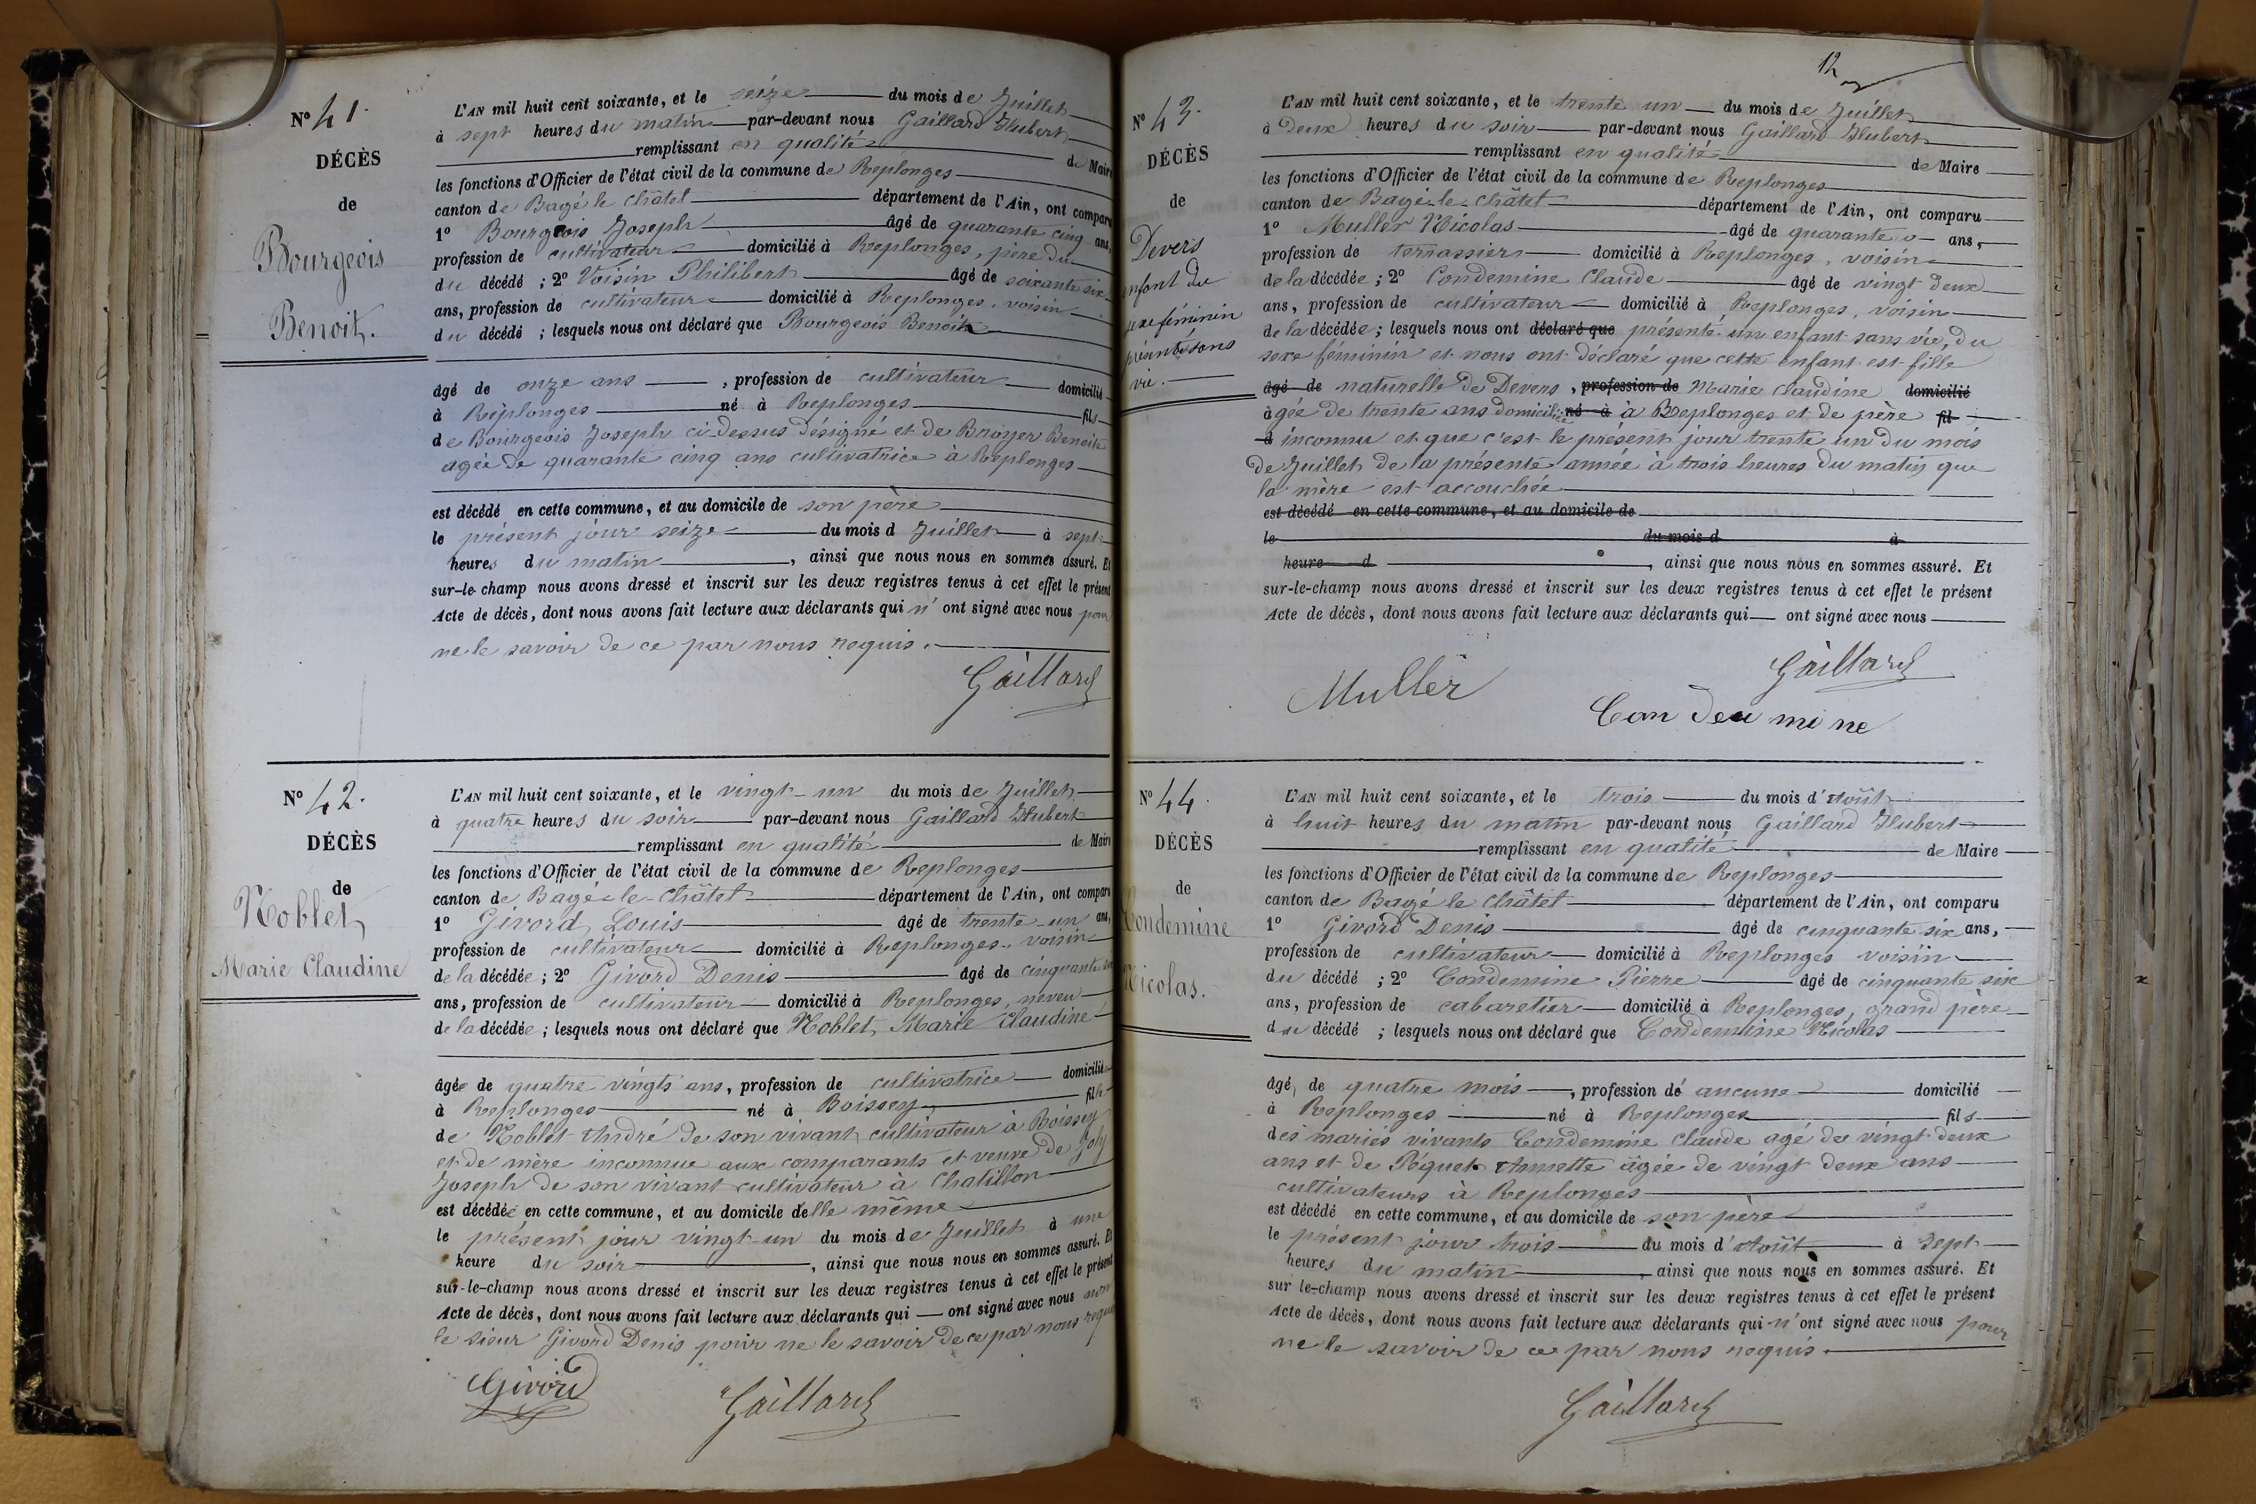 N° 41.
DÉCÈS
de
Bourgeois
Benoit.
L'AN mil huit cent soixante, et le seize du mois de Juillet
à sept heures du matin par-devant nous Gaillard Hubert
remplissant en qualité de Maire
les fonctions d'Officier de l'état civil de la commune de Replonges
canton de Bagé le Châtel département de l'Ain, ont comparu
1° Bourgeois Joseph âgé de quarante cinq ans,
profession de cultivateur domicilié à Replonges, père du
du décédé ; 2° Voisin Philibert âgé de soixante six
ans, profession de cultivateur domicilié à Replonges, voisin
du décédé ; lesquels nous ont déclaré que Bourgeois Benoit
âgé de onze ans , profession de cultivateur domicilié
à Replonges né à Replonges fils
de Bourgeois Joseph ci-dessus désigné et de Broyer Benoite
agée de quarante cinq ans cultivatrice à Replonges
est décédé en cette commune, et au domicile de son père
le présent jour seize du mois d Juillet à sept
heures du matin , ainsi que nous nous en sommes assuré. Et
sur-le-champ nous avons dressé et inscrit sur les deux registres tenus à cet effet le présent
Acte de décès, dont nous avons fait lecture aux déclarants qui n'ont signé avec nous pour
ne le savoir de ce par nous requis.
Gaillard
N° 42.
DÉCÈS
de
Noblet
Marie Claudine
L'AN mil huit cent soixante, et le vingt-un du mois de Juillet
à quatre heures du soir par-devant nous Gaillard Hubert
remplissant en qualité de Maire
les fonctions d'Officier de l'état civil de la commune de Replonges
canton de Bagé-le-Châtel département de l'Ain, ont comparu
1° Givord Louis âgé de trente-un ans,
profession de cultivateur domicilié à Replonges, voisin
de la décédée ; 2° Givord Denis âgé de cinquante six
ans, profession de cultivateur domicilié à Replonges, neveu
de la décédée ; lesquels nous ont déclaré que Noblet Marie Claudine
âgée de quatre vingts ans, profession de cultivatrice domiciliée
à Replonges né à Boissey fille
de Noblet André de son vivant cultivateur à Boissey
et de mère inconnue aux comparants et veuve de Joly
Joseph de son vivant cultivateur à Chatillon
est décédée en cette commune, et au domicile d'elle même
le présent jour vingt-un du mois de Juillet à une
heure du soir , ainsi que nous nous en sommes assuré. Et
sur-le-champ nous avons dressé et inscrit sur les deux registres tenus à cet effet le présent
Acte de décès, dont nous avons fait lecture aux déclarants qui ont signé avec nous non
le sieur Givord Denis pour ne le savoir de ce par nous requis
Givord
Gaillard
12
N° 43.
DÉCÈS
de
Devers
enfant du
sexe féminin
présenté sans
vie.
L'AN mil huit cent soixante, et le trente un du mois de Juillet
à Deux heures du soir par-devant nous Gaillard Hubert
remplissant en qualité de Maire
les fonctions d'Officier de l'état civil de la commune de Replonges
canton de Bagé-le-Châtel département de l'Ain, ont comparu
1° Muller Nicolas âgé de quarante ans,
profession de terrassier domicilié à Replonges, voisin
de la décédée ; 2° Condemine Claude âgé de vingt deux
ans, profession de cultivateur domicilié à Replonges, voisin
de la décédée ; lesquels nous ont déclaré que présenté un enfant sans vie, du
sexe féminin et nous ont déclaré que cette enfant est fille
âgé de naturelle de Devers , profession de Marie Claudine domicilié
âgée de trente ans domiciliée né à à Replonges et de père fil
d inconnu et que c'est le présent jour trente un du mois
de Juillet de la présente année à trois heures du matin que
la mère est accouchée
est décédé en cette commune, et au domicile de
le du mois d à
heure d , ainsi que nous nous en sommes assuré. Et
sur-le-champ nous avons dressé et inscrit sur les deux registres tenus à cet effet le présent
Acte de décès, dont nous avons fait lecture aux déclarants qui ont signé avec nous
Gaillard
Muller
Condeumine
N° 44.
DÉCÈS
de
Condemine
Nicolas.
L'AN mil huit cent soixante, et le trois du mois d'Août
à huit heures du matin par-devant nous Gaillard Hubert
remplissant en qualité de Maire
les fonctions d'Officier de l'état civil de la commune de Replonges
canton de Bagé le Châtel département de l'Ain, ont comparu
1° Givord Denis âgé de cinquante six ans,
profession de cultivateur domicilié à Replonges voisin
du décédé ; 2° Condemine Pierre âgé de cinquante six
ans, profession de cabaretier domicilié à Replonges, grand père
du décédé ; lesquels nous ont déclaré que Condemine Nicolas
âgé de quatre mois , profession de aucune domicilié
à Replonges né à Replonges fils
des mariés vivants Condemine Claude agé de vingt deux
ans et de Péquet Annette âgée de vingt deux ans
cultivateurs à Replonges
est décédé en cette commune, et au domicile de son père
le présent jour trois du mois d'Août à sept
heures du matin , ainsi que nous nous en sommes assuré. Et
sur le-champ nous avons dressé et inscrit sur les deux registres tenus à cet effet le présent
Acte de décès, dont nous avons fait lecture aux déclarants qui n'ont signé avec nous pour
ne le savoir de ce par nous requis.
Gaillard